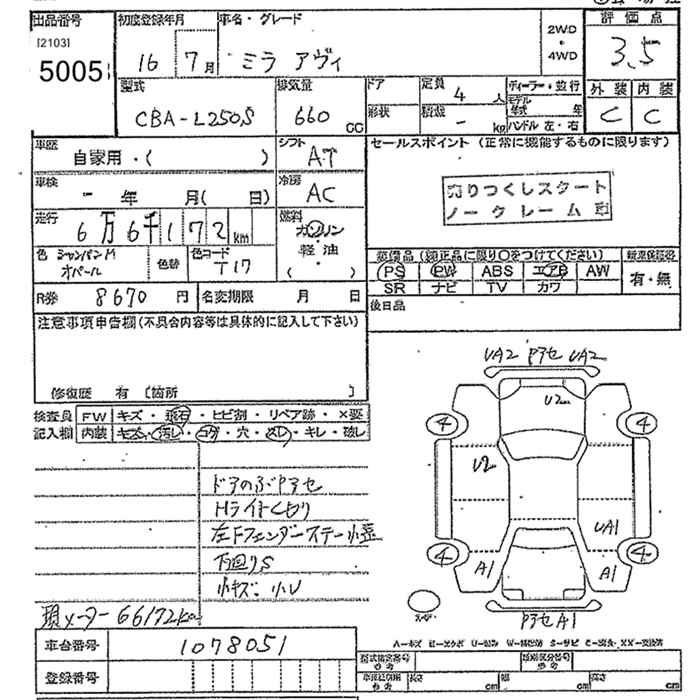 出品番号
[2103]
5005
初度登録年月
16 7月
車名・グレード
ミラ アヴィ
2WD
・
4WD
評価点
3.5
型式
CBA-L250S
排気量
660
CC
ドア
形状
定員
4 人
積載
- kg
ディーラー・並行
モデル年式 年
ハンドル 左・右
外装 内装
C C
車歴
自家用・( )
シフト
AT
セールスポイント (正常に機能するものに限ります)
売りつくしスタート
ノークレーム
車検
- 年 月( 日)
冷房
AC
走行
6万6千172km
燃料
ガソリン
・
軽油
( )
色 シャンパンM
オパール
色替
色コード
T17
装備品 (純正品に限り○をつけてください)
PS PW ABS エアB AW
SR ナビ TV カワ
新車保証書
有・無
R券 8670 円
名変期限 月 日
後日品
注意事項申告欄(不具合内容等は具体的に記入して下さい)
修復歴 有 [箇所 ]
検査員
記入欄
FW キズ・飛石・ヒビ割・リペア跡・×要
内装 キズ・汚レ・コゲ・穴・スレ・キレ・破レ
ドアのぶPアセ
Hライトくもり
左Fフェンダーステー小歪
下回りS
小キズ 小U
現メーター66172km
UA2 Pアセ UA2
U2
4 4
U2
UA1
4 4
A1 A1
Pアセ A1
車台番号 1078051
登録番号
型式指定番号
類別区分番号
長さ cm 幅 cm 高さ cm